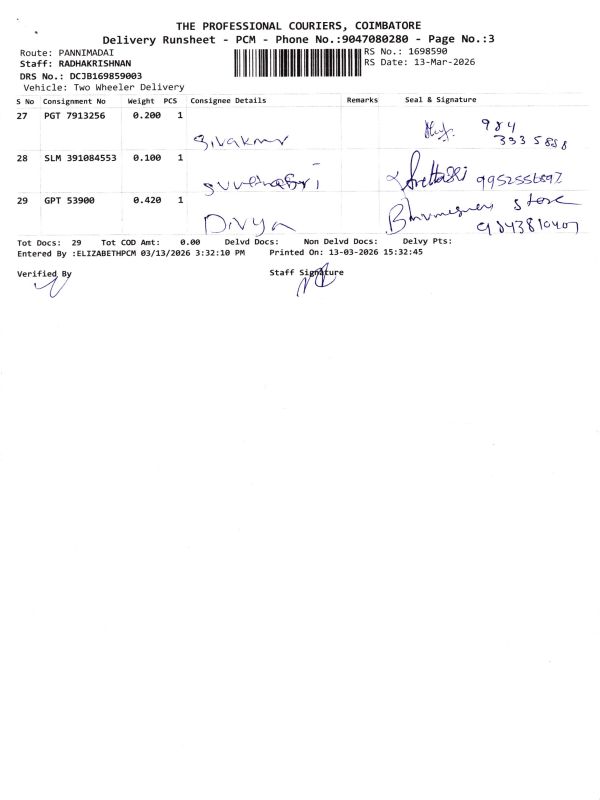 THE PROFESSIONAL COURIERS, COIMBATORE
Delivery Runsheet - PCM - Phone No.:9047080280 - Page No.:3
Route: PANNIMADAI
RS No.: 1698590
Staff: RADHAKRISHNAN
RS Date: 13-Mar-2026
DRS No.: DCJB169859003
Vehicle: Two Wheeler Delivery
S No Consignment No Weight PCS Consignee Details Remarks Seal & Signature
27 PGT 7913256 0.200 1
Sivakmr
984
3335888
28 SLM 391084553 0.100 1
29 GPT 53900 0.420 1
Divya
Store
9843810407
Tot Docs: 29 Tot COD Amt: 0.00 Delvd Docs: Non Delvd Docs: Delvy Pts:
Entered By :ELIZABETHPCM 03/13/2026 3:32:10 PM Printed On: 13-03-2026 15:32:45
Verified By Staff Signature